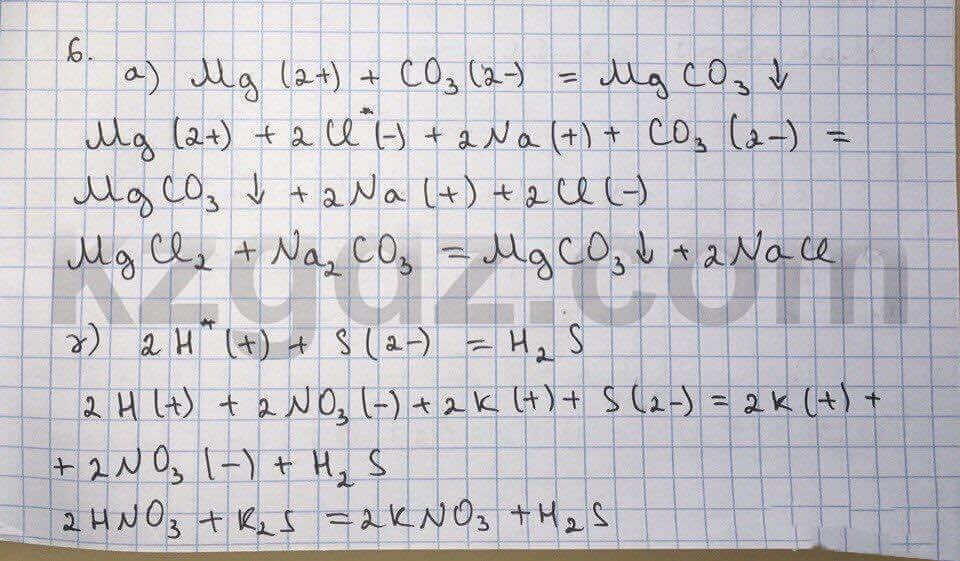 6.
a) Mg (2+) + CO₃ (2-) = MgCO₃ ↓
Mg (2+) + 2Cl* (-) + 2Na (+) + CO₃ (2-) =
MgCO₃ ↓ + 2Na (+) + 2Cl (-)
MgCl₂ + Na₂CO₃ = MgCO₃↓ + 2NaCl
kzgdz.com
г) 2H* (+) + S (2-) = H₂S
2H (+) + 2NO₃ (-) + 2K (+) + S (2-) = 2K (+) +
+ 2NO₃ (-) + H₂S
2HNO₃ + K₂S = 2KNO₃ + H₂S